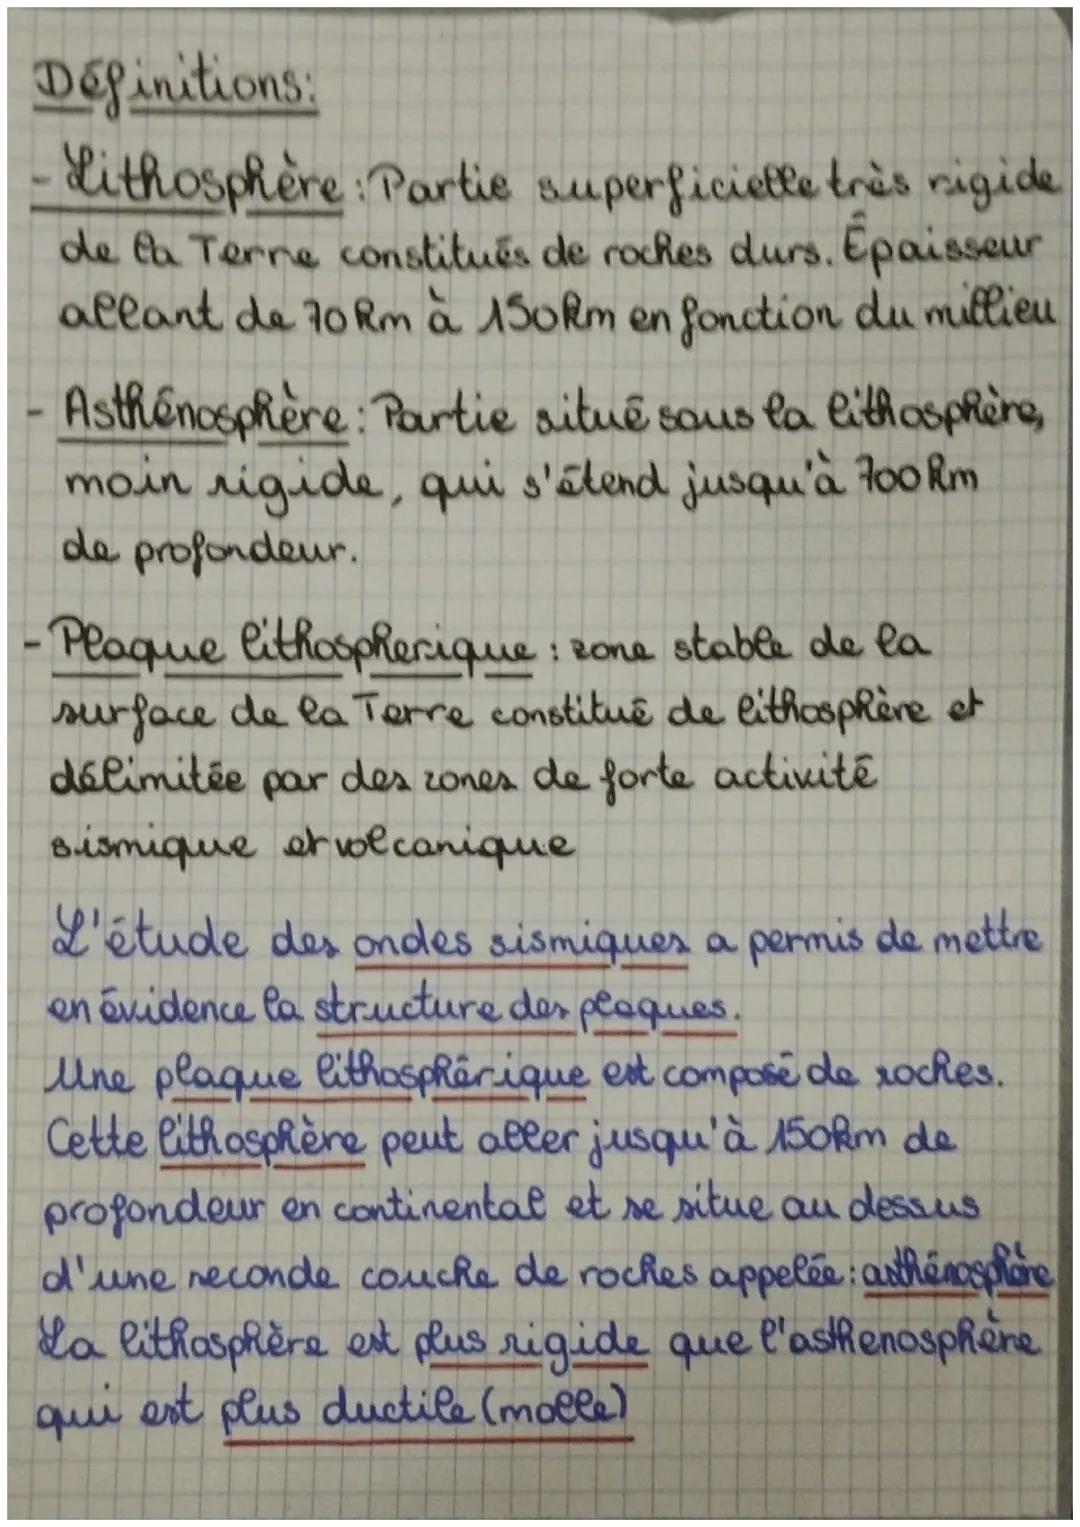 Définitions:
- Lithosphère : Partie superficielle très rigide
de la Terre constitués de roches durs. Épaisseur
allant de 70 km à 150 km en fonction du millieu
- Asthénosphère : Partie situé sous la lithosphère,
moin rigide, qui s'étend jusqu'à 700 km
de profondeur.
- Plaque lithospherique : zone stable de la
surface de la Terre constitué de lithosphère et
délimitée par des zones de forte activité
sismique et volcanique
L'étude des ondes sismiques a permis de mettre
en évidence la structure des plaques.
Une plaque lithosphérique est composé de roches.
Cette lithosphère peut aller jusqu'à 150km de
profondeur en continental et se situe au dessus
d'une seconde couche de roches appelée : asthénosphère
La lithosphère est plus rigide que l'asthenosphère
qui est plus ductile (molle)